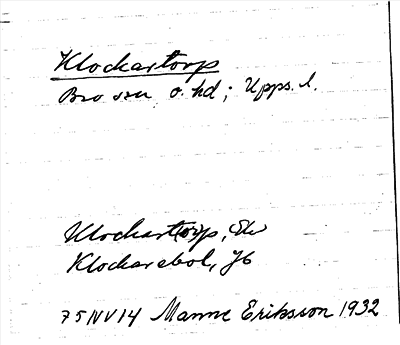 Klockartorp
Bro sn o. hd; Upps. l.
Klockart(or)p, Ek
Klockarebol, Jb
75NV14 Manne Eriksson 1932